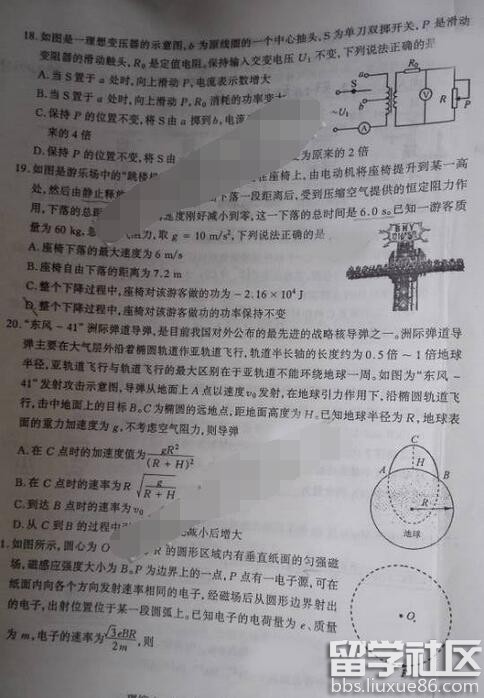 18.如图是一理想变压器的示意图,b为原线圈的一个中心抽头,S为单刀双掷开关,P是滑动
变阻器的滑动触头,R₀是定值电阻。保持输入交变电压U₁不变,下列说法正确的是
A.当S置于a处时,向上滑动P,电流表示数增大
B.当S置于a处时,向上滑动P,R₀消耗的功率变
C.保持P的位置不变,将S由a掷到b,电流
来的4倍
D.保持P的位置不变,将S由
为原来的2倍
a
S
b
~U₁
A
R₀
V
R
P
19.如图是游乐场中的“跳楼机
在座椅上,由电动机将座椅提升到某一高
处,然后由静止释放
下落一段距离后,受到压缩空气提供的恒定阻力作
用,下落的总距
速度刚好减小到零,这一下落的总时间是6.0 s。已知一游客质
量为60 kg,忽
阻力,取g=10 m/s²,下列说法正确的是
A.座椅下落的最大速度为6 m/s
B.座椅自由下落的距离为7.2 m
C.整个下降过程中,座椅对该游客做的功为-2.16×10⁴J
D.整个下降过程中,座椅对该游客做功的功率保持不变
20.“东风-41”洲际弹道导弹,是目前我国对外公布的最先进的战略核导弹之一。洲际弹道导
弹主要在大气层外沿着椭圆轨道作亚轨道飞行,轨道半长轴的长度约为0.5倍~1倍地球
半径,亚轨道飞行与轨道飞行的最大区别在于亚轨道不能环绕地球一周。如图为“东风-
41”发射攻击示意图,导弹从地面上A点以速度v₀发射,在地球引力作用下,沿椭圆轨道飞
行,击中地面上的目标B。C为椭圆的远地点,距地面高度为H。已知地球半径为R,地球表
面的重力加速度为g,不考虑空气阻力,则导弹
A.在C点时的加速度值为gR²/(R+H)²
B.在C点时的速率为R√(g/(R+H))
C.到达B点时的速率为v₀
D.从C到B的过程中
减小后增大
C
A
H
B
R
地球
1.如图所示,圆心为O
R的圆形区域内有垂直纸面的匀强磁
场,磁感应强度大小为B。P为边界上的一点,P点有一电子源,可在
纸面内向各个方向发射速率相同的电子,经磁场后从圆形边界射出
的电子,出射位置位于某一段圆弧上。已知电子的电荷量为e、质量
为m,电子的速率为√3eBR/2m,则
O
留学社区
bbs.liuxue86.com